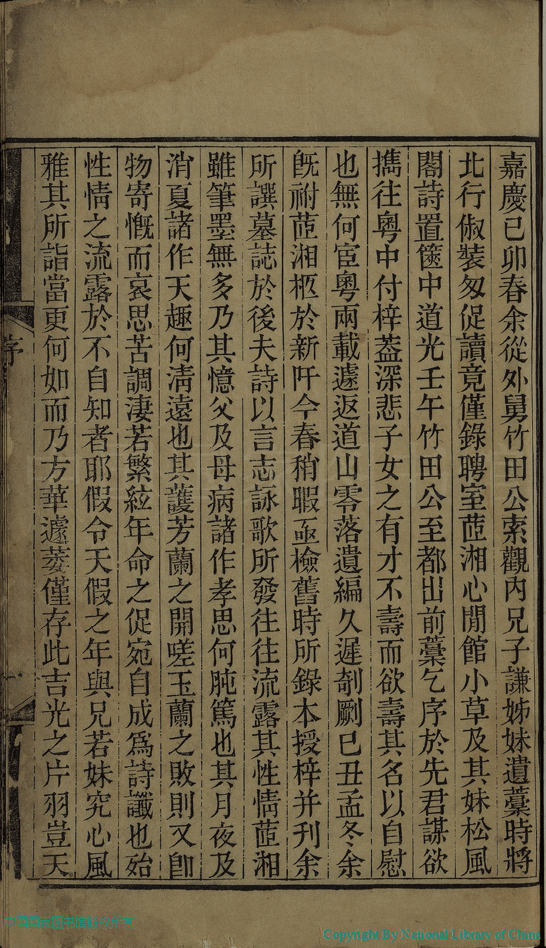 嘉慶己卯春余從外舅竹田公索觀內兄子謙姊妹遺藁時將
北行俶裝匆促讀竟僅錄聘室茝湘心閒館小草及其妹松風
閣詩置篋中道光壬午竹田公至都出前藁乞序於先君謀欲
攜往粵中付梓葢深悲子女之有才不壽而欲壽其名以自慰
也無何宦粵兩載遽返道山零落遺編久遲剞劂己丑孟冬余
旣祔茝湘柩於新阡今春稍暇亟檢舊時所錄本授梓并刊余
所譔墓誌於後夫詩以言志詠歌所發往往流露其性情茝湘
雖筆墨無多乃其憶父及母病諸作孝思何肫篤也其月夜及
消夏諸作天趣何淸遠也其護芳蘭之開嗟玉蘭之敗則又卽
物寄慨而哀思苦調淒若繁絃年命之促宛自成爲詩讖也殆
性情之流露於不自知者耶假令天假之年與兄若妹究心風
雅其所詣當更何如而乃方華遽萎僅存此吉光之片羽豈天
序
Copyright By National Library of China